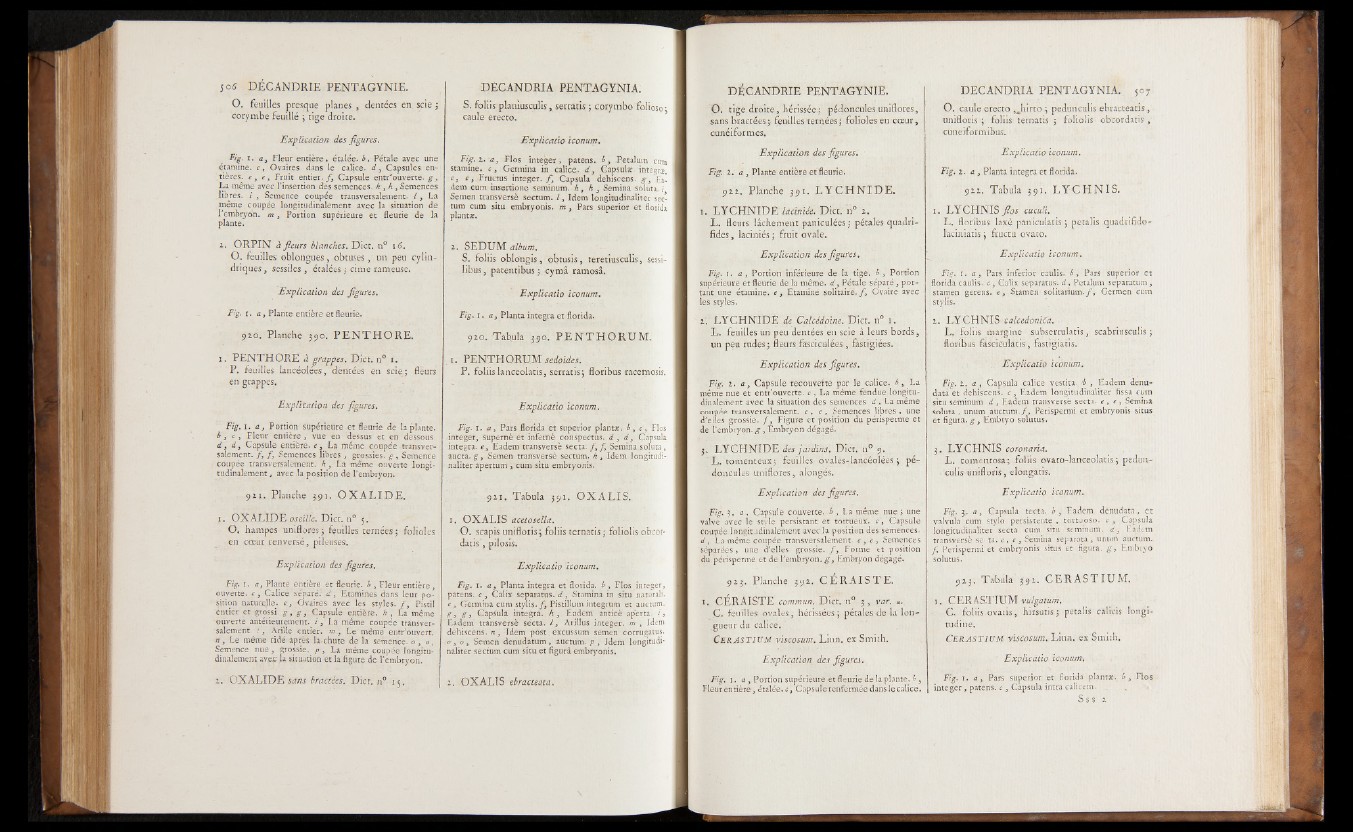 506 DÉCANDRIE PENTAGYNIE.
O. feuilles presque planes , dentées en scie ;
corymbe feuillé ; tige droite.
Explication des figures.
Fig. 1. a, Fleur entière, étalée. b, Pétale avec une
étamine. c, Ovaires dans le calice. d, Capsules en-
tières. e, e, Fruit entier. f, Capsule entr'ouverte. g,
La même avec l'insertion des semences. h, h, Semences
libres. i , Semence coupée transversalement. l , La
même coupée longitudinalement avec la situation de
l'embryon. m, Portion supérieure et fleurie de la
plante.
2. ORPIN à fleurs blanches. Dict. n° 16.
O. feuilles oblongues, obtuses , un peu cylin-
driques, sessiles , étalées ; cime rameuse.
Explication des figures.
Fig. 1. a, Plante entière et fleurie.
920. Planche 390. PENTHORE.
1. PENTHORE à grappes. Dict. n° 1.
P. feuilles lancéolées, dentées en scie; fleurs
en grappes.
Explication des figures.
Fig. 1. a, Portion supérieure et fleurie de la plante.
b, c, Fleur entière, vue en dessus et en dessous.
d, d, Capsule entière. e, La même coupée transver-
salement. f, f, Semences libres , grossies. g, Semence
coupée transversalement. h, La même ouverte longi-
tudinalement, avec la position de l'embryon.
921. Planche 391. OXALIDE.
1. OXALIDE oseille. Dict. n° 5.
O. hampes uniflores; feuilles ternées; folioles
en cœur renversé, pileuses.
Explication des figures.
Fig. 1. a, Plante entière et fleurie. b, Fleur entière,
ouverte. c, Calice séparé. d, Etamines dans leur po-
sition naturelle. e, Ovaires avec les styles. f, Pistil
entier et grossi g, g, Capsule entière. h, La même
ouverte antérieurement. i, La même coupée transver-
salement l, Arille entier. m, Le même entr'ouvert.
n, Le même ridé après la chute de la semence. o, o,
Semence nue, grossie. p, La même coupée longitu-
dinalement avec la situation et la figure de l'embryon.
2. OXALIDE sans bractées. Dict. n° 15.
DECANDRIA PENTAGYNIA.
S. foliis planiusculis, serratis ; corymbo folioso ;
caule erecto.
Explicatio iconum.
Fig. 1. a, Flos integer, patens. b, Petalum cum
stamine. c, Germina in calice. d, Capsulæ integræ.
e, e, Fructus integer. f, Capsula dehiscens. g, Ea-
dem cum insertione seminum. h, h, Semina soluta. i,
Semen transversè sectum. l, Idem longitudinaliter sec-
tum cum situ embryonis. m, Pars superior et florida
plantæ.
2. SEDUM album.
S. foliis oblongis, obtusis, teretiusculis, sessi-
libus, patentibus ; cymâ ramosâ.
Explicatio iconum.
Fig. 1. a, Planta integra et florida.
920. Tabula 390. PENTHORUM.
1. PENTHORUM sedoides.
P. foliis lanceolatis, serratis; floribus racemosis.
Explicatio iconum.
Fig. 1. a, Pars florida et superior plantæ. b, c, Flos
integer, supernè et infernè conspectus. d, d, Capsula
integra. e, Eadem transversè secta. f, f, Semina soluta,
aucta. g, Semen transversè sectum. h, Idem longitudi-
naliter apertum, cum situ embryonis.
921. Tabula 391. OXALIS.
1. OXALIS acetosella.
O. scapis unifloris; foliis ternatis; foliolis obcor-
datis , pilosis.
Explicatio iconum.
Fig. 1. a, Planta integra et florida. b, Flos integer,
patens. c, Calix separatus. d, Stamina in situ naturali.
e, Germina cum stylis. f, Pistillum integrum et auctum.
g, g, Capsula integra. h, Eadem anticè aperta. i,
Eadem transversè secta. l, Arillus integer. m, Idem
dehiscens. n, Idem post excussum semen corrugatus.
o, o, Semen denudatum, auctum. p, Idem longitudi-
naliter sectum cum situ et figurâ embryonis.
2. OXALIS ebracteata.
DÉCANDRIE PENTAGYNIE.
O. tige droite, hérissée ; pédoncules uniflores,
sans bractées; feuilles ternées; folioles en cœur,
cunéiformes.
Explication des figures.
Fig. 2. a, Plante entière et fleurie.
922. Planche 391. LYCHNIDE.
1. LYCHNIDE laciniée. Dict. n° 2.
L. fleurs lâchement paniculées ; pétales quadri-
fides, laciniés ; fruit ovale.
Explication des figures.
Fig. 1. a, Portion inférieure de la tige. b, Portion
supérieure et fleurie de la même. d, Pétale séparé, por-
tant une étamine. e, Etamine solitaire. f, Ovaire avec
les styles.
2. LYCHNIDE de Calcédoine. Dict. n° 1.
L. feuilles un peu dentées en scie à leurs bords,
un peu rudes; fleurs fasciculées, fastigiées.
Explication des figures.
Fig. 2. a, Capsule recouverte par le calice. b, La
même nue et entr'ouverte. c, La même fendue longitu-
dinalement avec la situation des semences. d, La même
coupée transversalement. e, e, Semences libres, une
d'elles grossie. f, Figure et position du périsperme et
de l'embryon. g, Embryon dégagé.
3. LYCHNIDE des jardins. Dict. n° 9.
L. tomenteux; feuilles ovales-lancéolées ; pé-
doncules uniflores, alongés.
Explication des figures.
Fig. 3. a, Capsule couverte. b, La même nue ; une
valve avec le stile persistant et tortueux. c, Capsule
coupée longitudinalement avec la position des semences.
d, La même coupée transversalement. e, e, Semences
séparées, une d'elles grossie. f, Forme et position
du périsperme et de l'embryon. g, Embryon dégagé.
923. Planche 392. CÉRAISTE.
1. CÉRAISTE commun. Dict. n° 3, var. α.
C. feuilles ovales, hérissées ; pétales de la lon-
gueur du calice.
CERASTIUM viscosum. Linn. ex Smith.
Explication des figures.
Fig. 1. a, Portion supérieure et fleurie de la plante. b,
Fleur entière, étalée. c, Capsule renfermée dans le calice.
DECANDRIA PENTAGYNIA. 507
O. caule erecto, hirto ; pedunculis ebracteatis,
unifloris ; foliis ternatis ; foliolis obcordatis ,
cuneiformibus.
Explicatio iconum.
Fig. 2. a, Planta integra et florida.
922. Tabula 391. LYCHNIS.
1. LYCHNIS flos cuculi.
L. floribus laxè paniculatis ; petalis quadrifido-
laciniatis ; fructu ovato.
Explicatio iconum.
Fig. 1. a, Pars inferior caulis. b, Pars superior et
florida caulis. c, Calix separatus. d, Petalum separatum,
stamen gerens. e, Stamen solitarium. f, Germen cum
stylis.
2. LYCHNIS calcedonica.
L. foliis margine subserrulatis, scabriusculis ;
floribus fasciculatis, fastigiatis.
Explicatio iconum.
Fig. 2. a, Capsula calice vestita b, Eadem denu-
data et dehiscens. c, Eadem longitudinaliter fissa cum
situ seminum d, Eadem transversè secta. e, e, Semina
soluta, unum auctum. f, Perispermi et embryonis situs
et figura. g, Embryo solutus.
3. LYCHNIS coronaria.
L. tomentosa; foliis ovato-lanceolatis ; pedun-
culis unifloris, elongatis.
Explicatio iconum.
Fig. 3. a, Capsula tecta. b, Eadem denudata, et
valvula cum stylo persistente , tortuoso. c, Capsula
longitudinaliter secta cum situ seminum. d, Eadem
transversè secta. e, e, Semina separata, unum auctum.
f, Perispermi et embryonis situs et figura. g, Embryo
solutus.
923. Tabula 392. CERASTIUM.
1. CERASTIUM vulgatum.
C. foliis ovatis, hirsutis ; petalis calicis longi-
tudine.
CERASTIUM viscosum. Linn. ex Smith.
Explicatio iconum.
Fig. 1. a, Pars superior et florida plantæ. b, Flos
integer, patens. c, Capsula intra calicem.
Sss 2